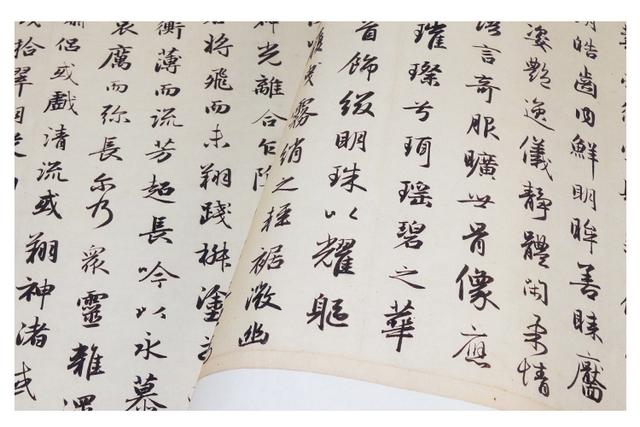 皓齒内鮮明眸善睞靨
姿艷逸儀靜體閑柔情
語言奇服曠世骨像應
璀璨兮珥瑤碧之華
首飾綴明珠以耀軀
霧綃之輕裾微幽
神光離合乍陰
將飛而未翔踐椒塗
衡薄而流芳超長吟以永慕
哀厲而彌長爾乃衆靈雜
侶或戲清流或翔神渚或
拾翠羽